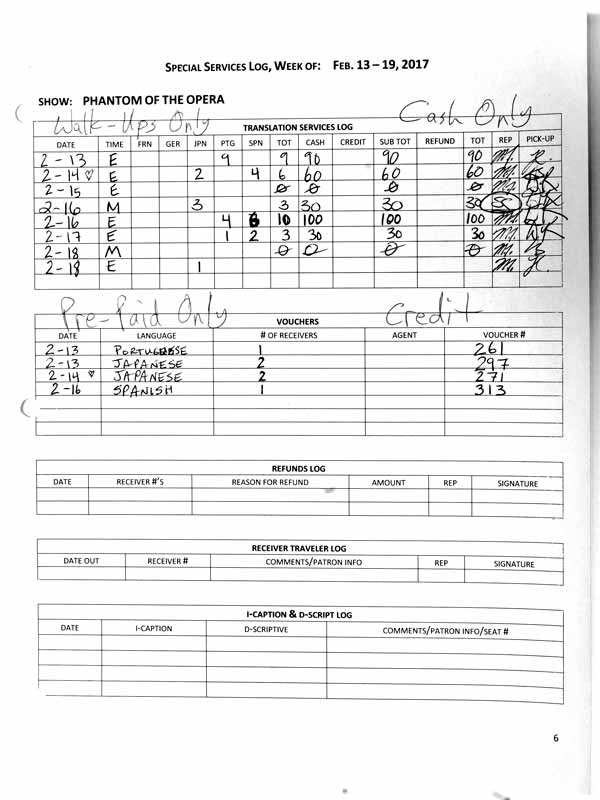 SPECIAL SERVICES LOG, WEEK OF: FEB. 13 – 19, 2017
SHOW: PHANTOM OF THE OPERA
Walk-Ups Only Cash Only
TRANSLATION SERVICES LOG
DATE TIME FRN GER JPN PTG SPN TOT CASH CREDIT SUB TOT REFUND TOT REP PICK-UP
2-13 E 9 9 90 90 90 M.
2-14 ♡ E 2 4 6 60 60 60 M.
2-15 E 0 0 0 0 M.
2-16 M 3 3 30 30 30 SC
2-16 E 4 6 10 100 100 100 M.
2-17 E 1 2 3 30 30 30 M.
2-18 M 0 0 0 0 M.
2-18 E 1 M.
Pre-Paid Only Credit
VOUCHERS
DATE LANGUAGE # OF RECEIVERS AGENT VOUCHER #
2-13 PORTUGUESE 1 261
2-13 JAPANESE 2 297
2-14 ♡ JAPANESE 2 271
2-16 SPANISH 1 313
REFUNDS LOG
DATE RECEIVER #'S REASON FOR REFUND AMOUNT REP SIGNATURE
RECEIVER TRAVELER LOG
DATE OUT RECEIVER # COMMENTS/PATRON INFO REP SIGNATURE
I-CAPTION & D-SCRIPT LOG
DATE I-CAPTION D-SCRIPTIVE COMMENTS/PATRON INFO/SEAT #
6